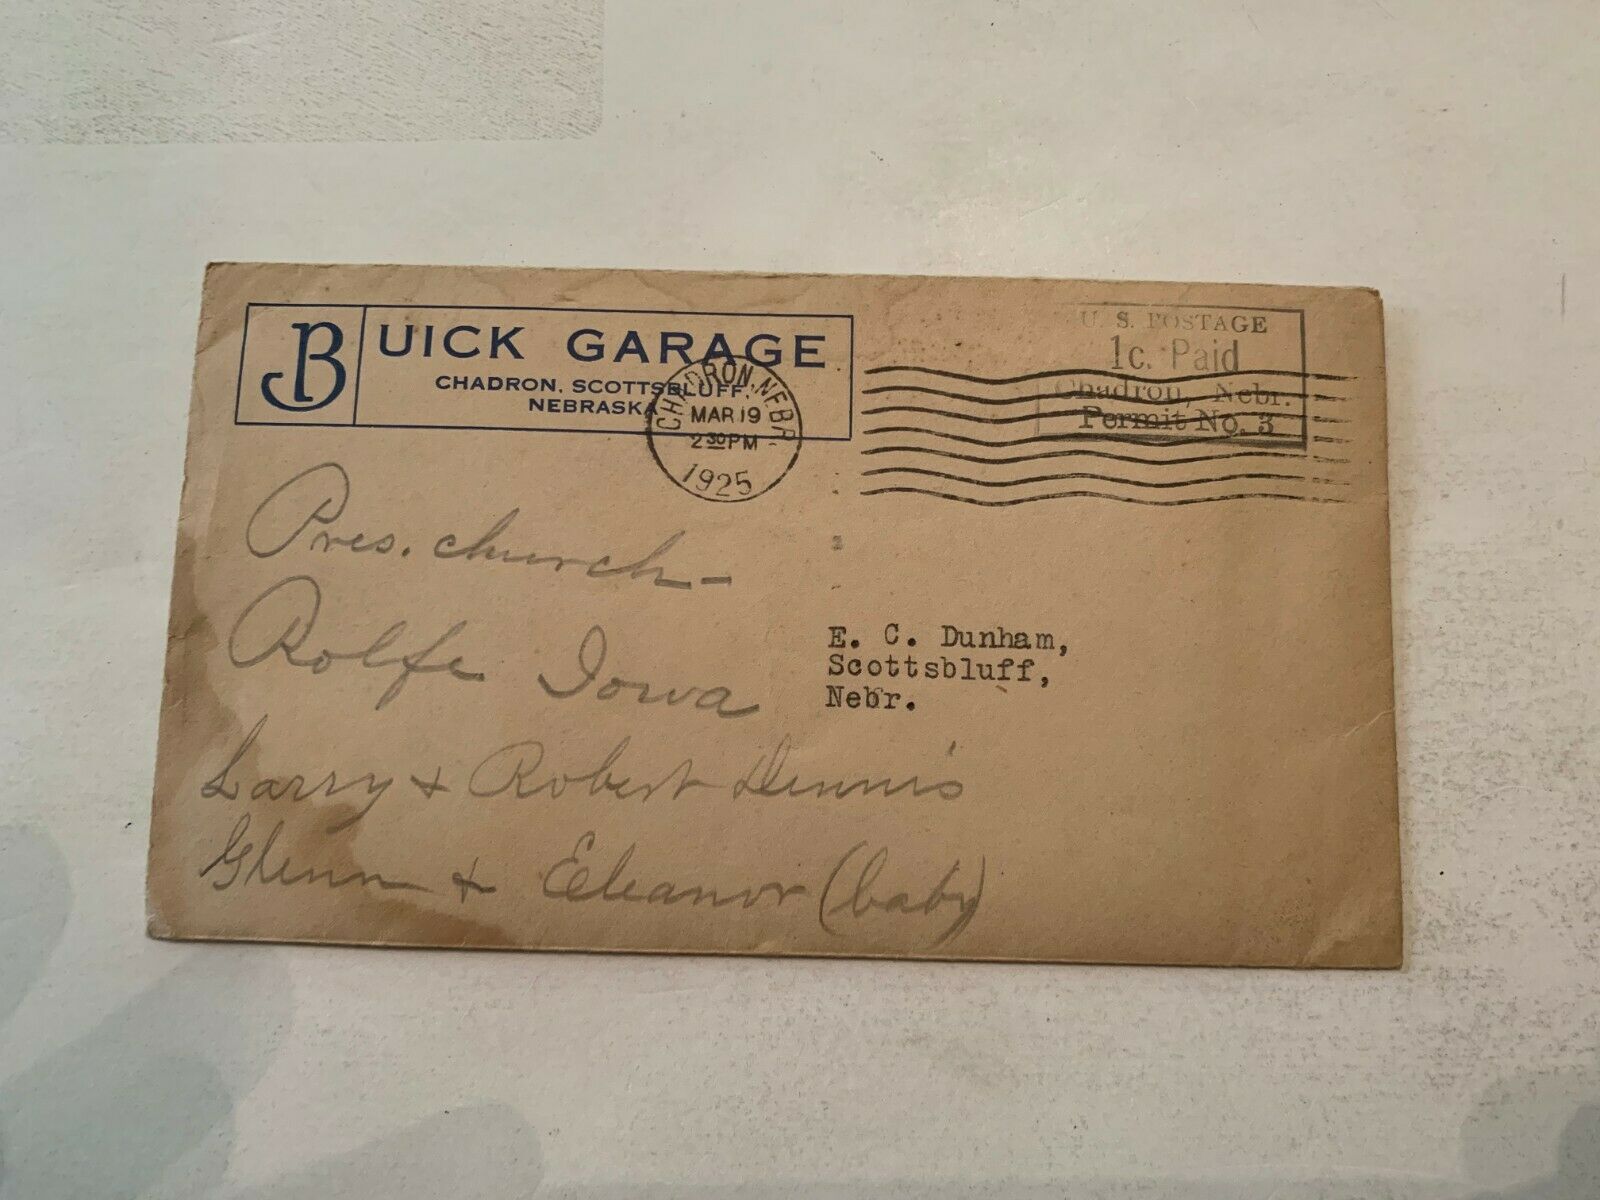 BUICK GARAGE
CHADRON, SCOTTSBLUFF,
NEBRASKA
CHADRON, NEBR.
MAR 19
2 30 PM
1925
U. S. POSTAGE
1c. Paid
Chadron, Nebr.
Permit No. 3
Pres. church -
Rolfe Iowa
Larry + Robert Dennis
Glenn + Eleanor (baby)
E. C. Dunham,
Scottsbluff,
Nebr.